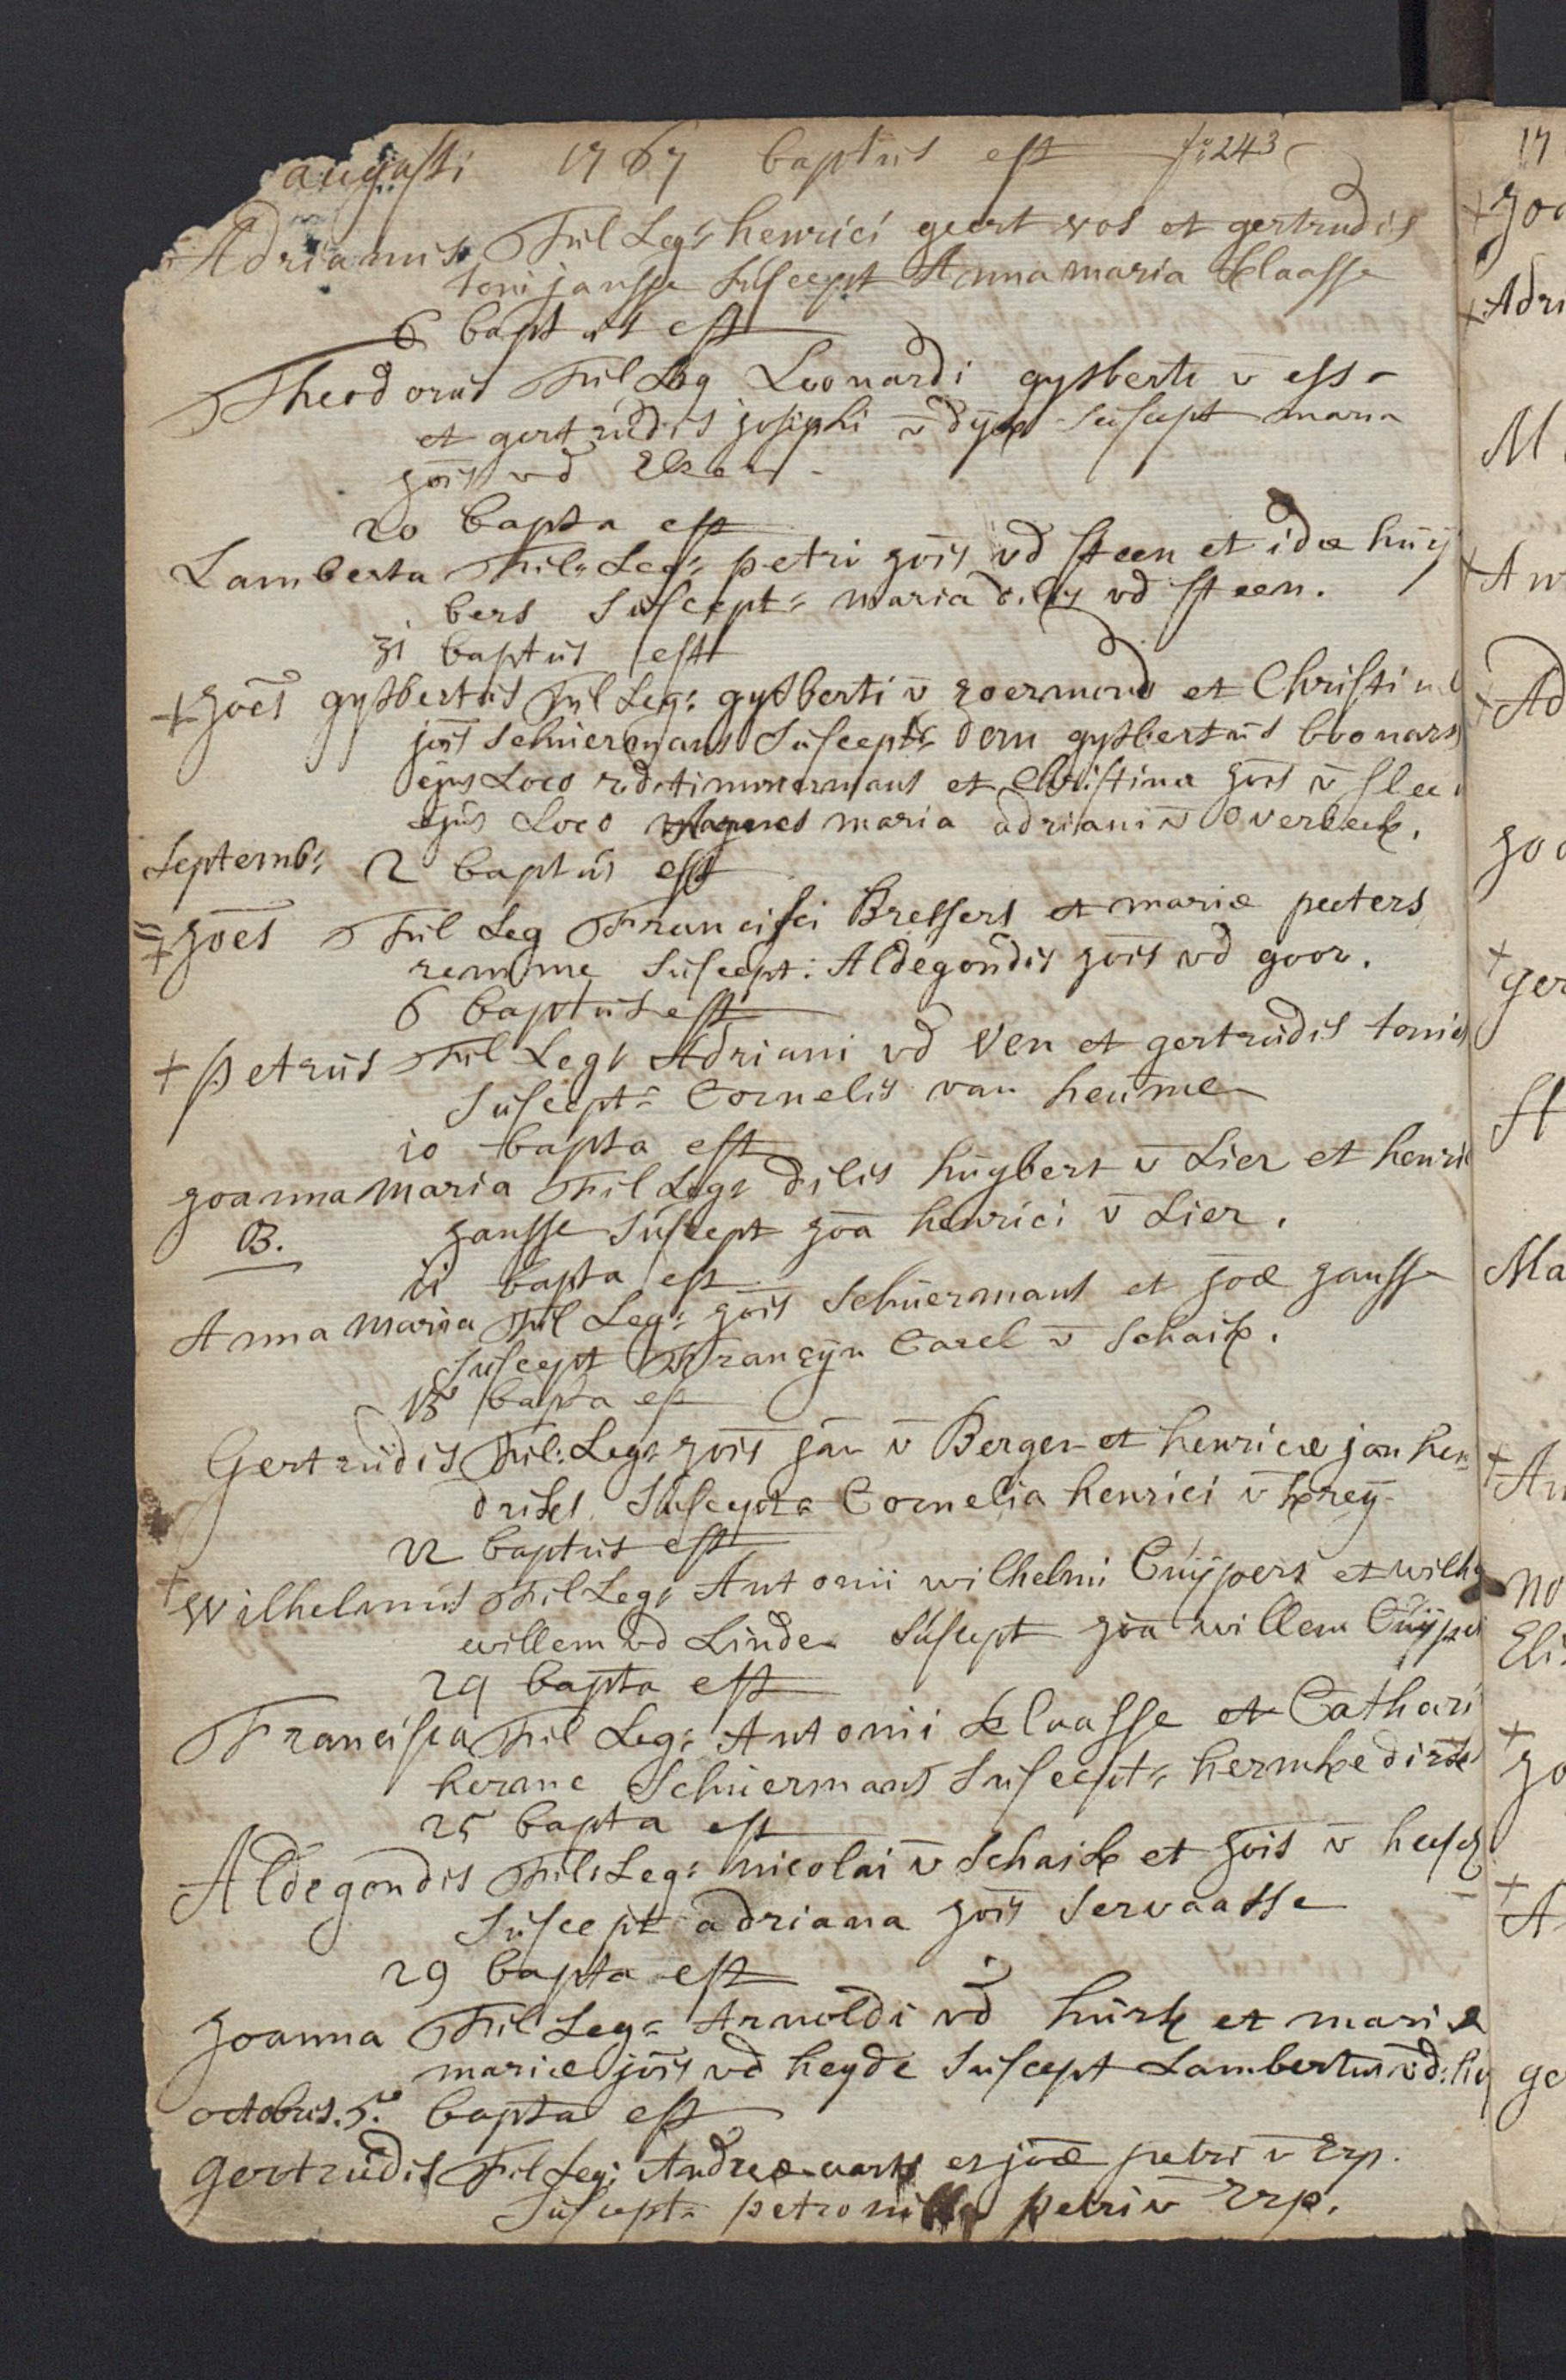 augusti 1767 baptus est fo 243
Adrianus Fil Leg: henrici geert vos et gertrudis
toni jansse suscept Anna maria Klaasse
6 baptus est
Theodorus Fil Leg Leonardi gysberti v ess
et gertrudis josephi v dijck suscept maria
jois vd Elsen
20 bapta est
Lamberta Fil: Leg: petri jois vd steen et idæ huij
bers Suscept: maria dilis vd steen.
31 baptus est
+ joēs gysbertus Fil Leg: gysberti v roermond et Christinæ
jois schuermans Suscept: dom gysbertus boonars
ejus Loco rd timmermans et Christina jois v slee
ejus Loco Agnes maria adriani v Overbeek.
Septemb: 2 baptus est
+ joēs Fil Leg Francisci Bressers et mariæ peeters
remme Suscept: Aldegondis jois vd goor.
6 baptus est
+ petrus Fil Leg: Adriani vd Ven et gertrudis tonis
Suscept: Cornelis van heume
10 bapta est
joanna maria Fil Leg: dilis huybert v Lier et henri
B. jansse Suscept joa henrici v Lier.
11 bapta est
Anna maria Fil Leg: jois Schuermans et joæ jansse
Suscept Francyn Carel v Schaik.
15 bapta est
Gertrudis Fil: Leg: jois jan v Bergen et henricæ jan hen
driks. Suscepta Cornelia henrici v kreij
22 baptus est
+ Wilhelmus Fil Leg: Antonii wilhelmi Cuijpers et wilh
willem vd Linden Suscept joa willem Cuijpers
29 bapta est
Francisca Fil Leg: Antonii Klaasse et Cathari
herme Schuermans Suscept: hermke dirks
25 bapta est
Aldegondis Fil: Leg: nicolai v Schaik et jois v heesch
Suscept adriana jois Servaasse
29 bapta est
Joanna Fil Leg: Arnoldi vd hurk et mariæ
mariæ jois vd heyde Suscept Lambertus vd: hu
octobris. 5. bapta est
gertrudis Fil Leg: Andreæ aarts et joæ petri v Erp.
Suscept: petronilla petri v Erp.